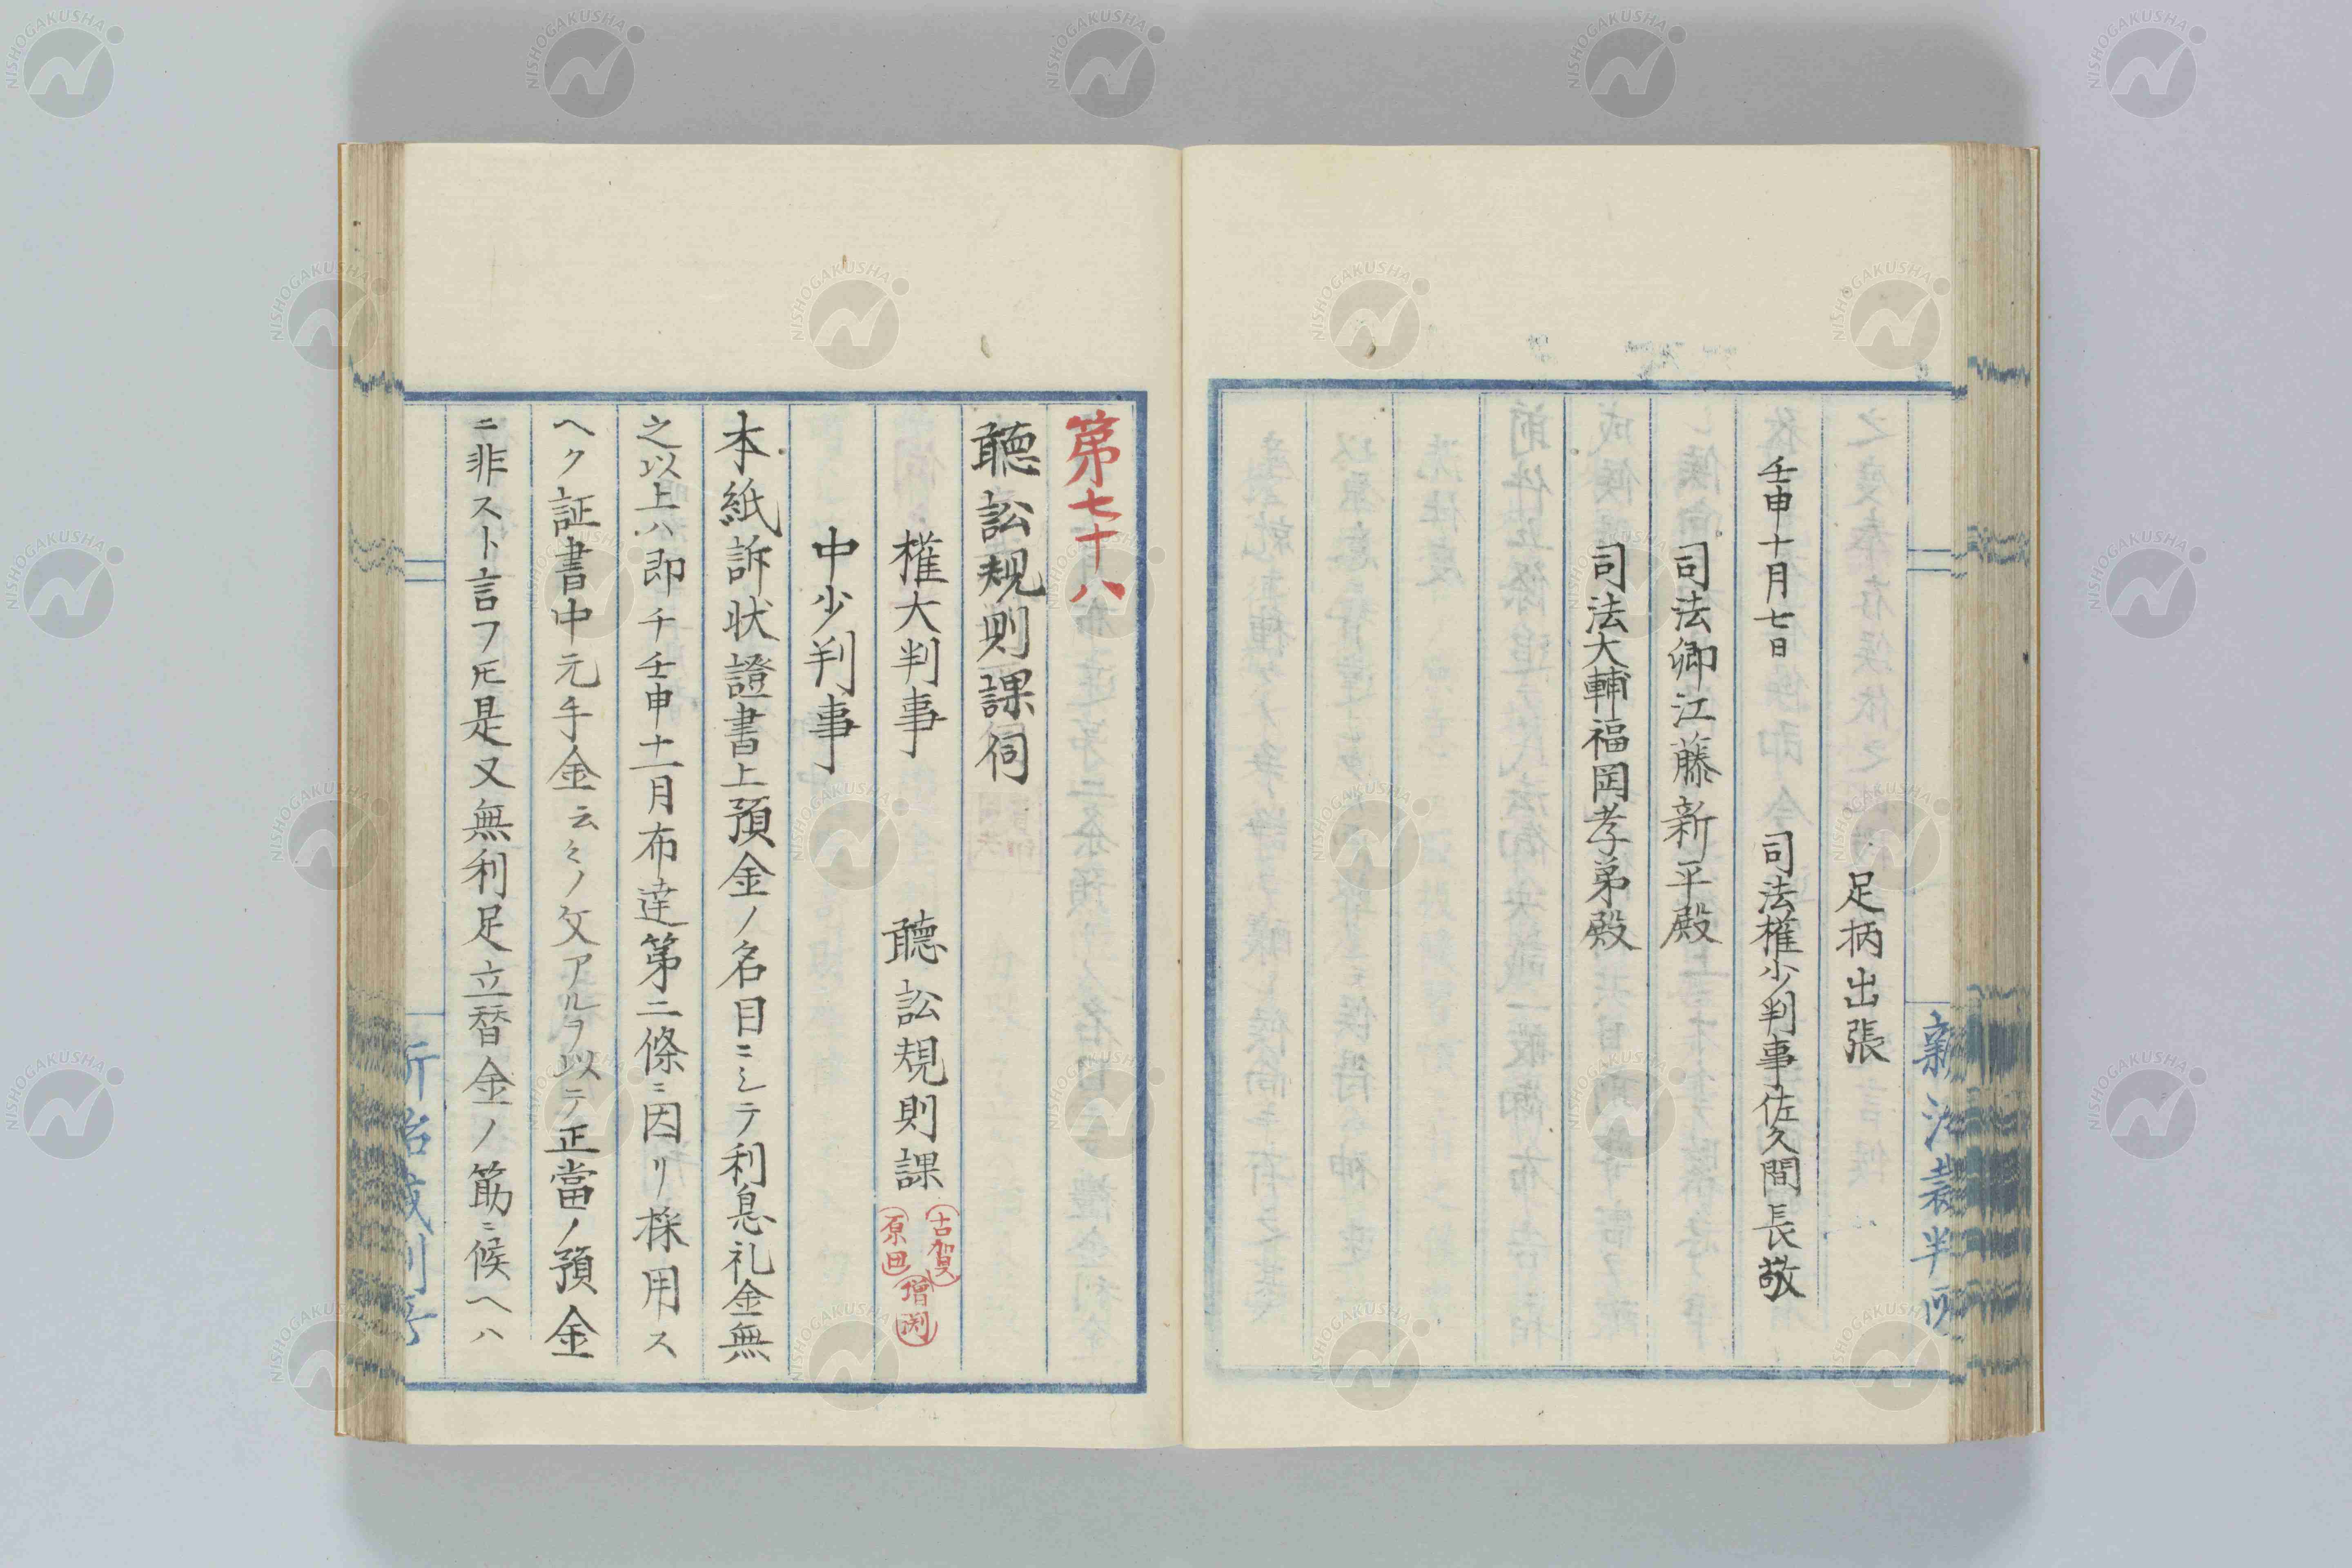 足柄出張
壬申十月七日 司法権少判事佐久間長敬
司法卿江藤新平殿
司法大輔福岡孝弟殿
第七十八
聽訟規則課伺
権大判事 聽訟規則課 古賀 原田 増渕
中少判事
本紙訴状證書上預金ノ名目ニシテ利息礼金無
之以上ハ即チ壬申十一月布達第二條ニ因リ採用ス
ヘク証書中元手金云々ノ文アルヲ以テ正當ノ預金
ニ非スト言フ𪜈是又無利足立替金ノ筋ニ候ヘハ
新治裁判所
NISHOGAKUSHA